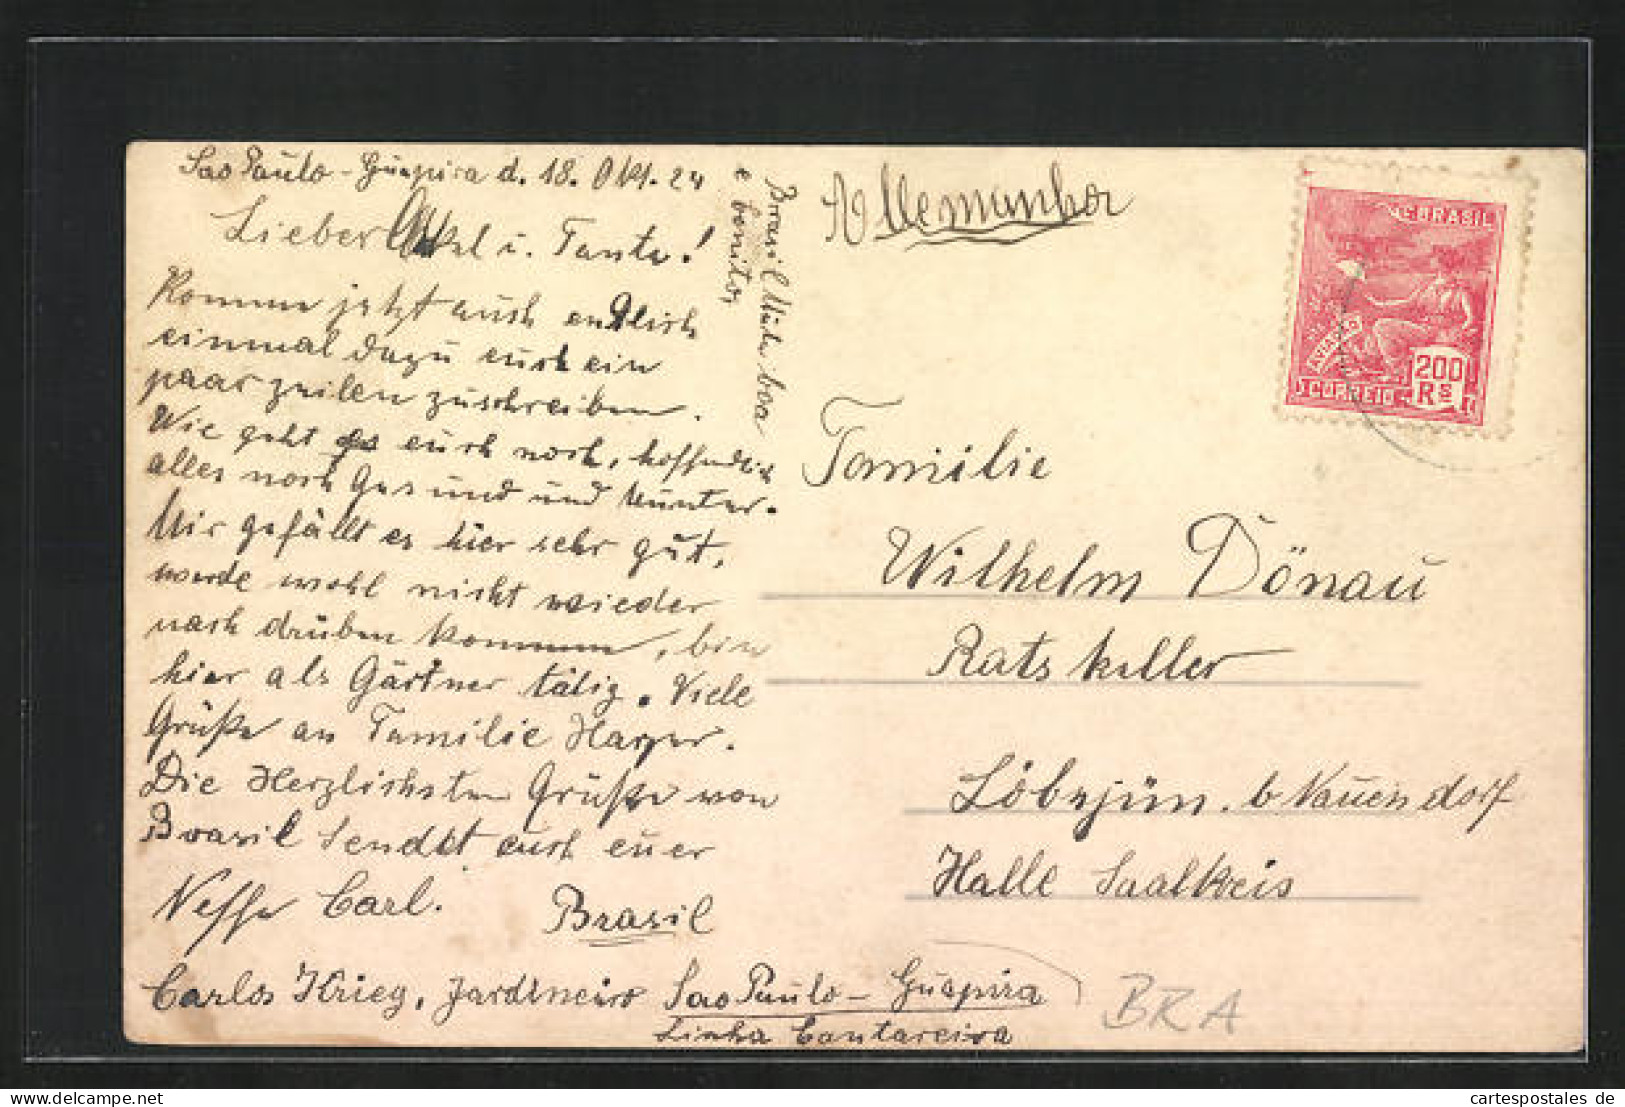 Sao Paulo - Guapira d. 18. Okt. 24
Lieber Onkel u. Tante!
Komme jetzt auch endlich
einmal dazu euch ein
paar zeilen zuschreiben.
Wie geht es euch noch, hoffendlich
alles noch Gesund und Munter.
Mir gefällt es hier sehr gut,
werde wohl nicht wieder
nach drüben kommen, bin
hier als Gärtner tätig. Viele
Grüße an Familie Harper.
Die Herzlichsten Grüße von
Brasil Sendet euch euer
Neffe Carl.
Brasil
Carlos Krieg, Jardineiro Sao Paulo - Guapira
Linha Cantareira
Brasil boa
e bonito,
Allemanha
Familie
Wilhelm Dönau
Ratskeller
Löbejün. b Nauendorf
Halle Saalkreis
BRASIL
AVIAÇÃO
200
Rs
CORREIO
BRA
cartespostales de
www.cartespostales.com